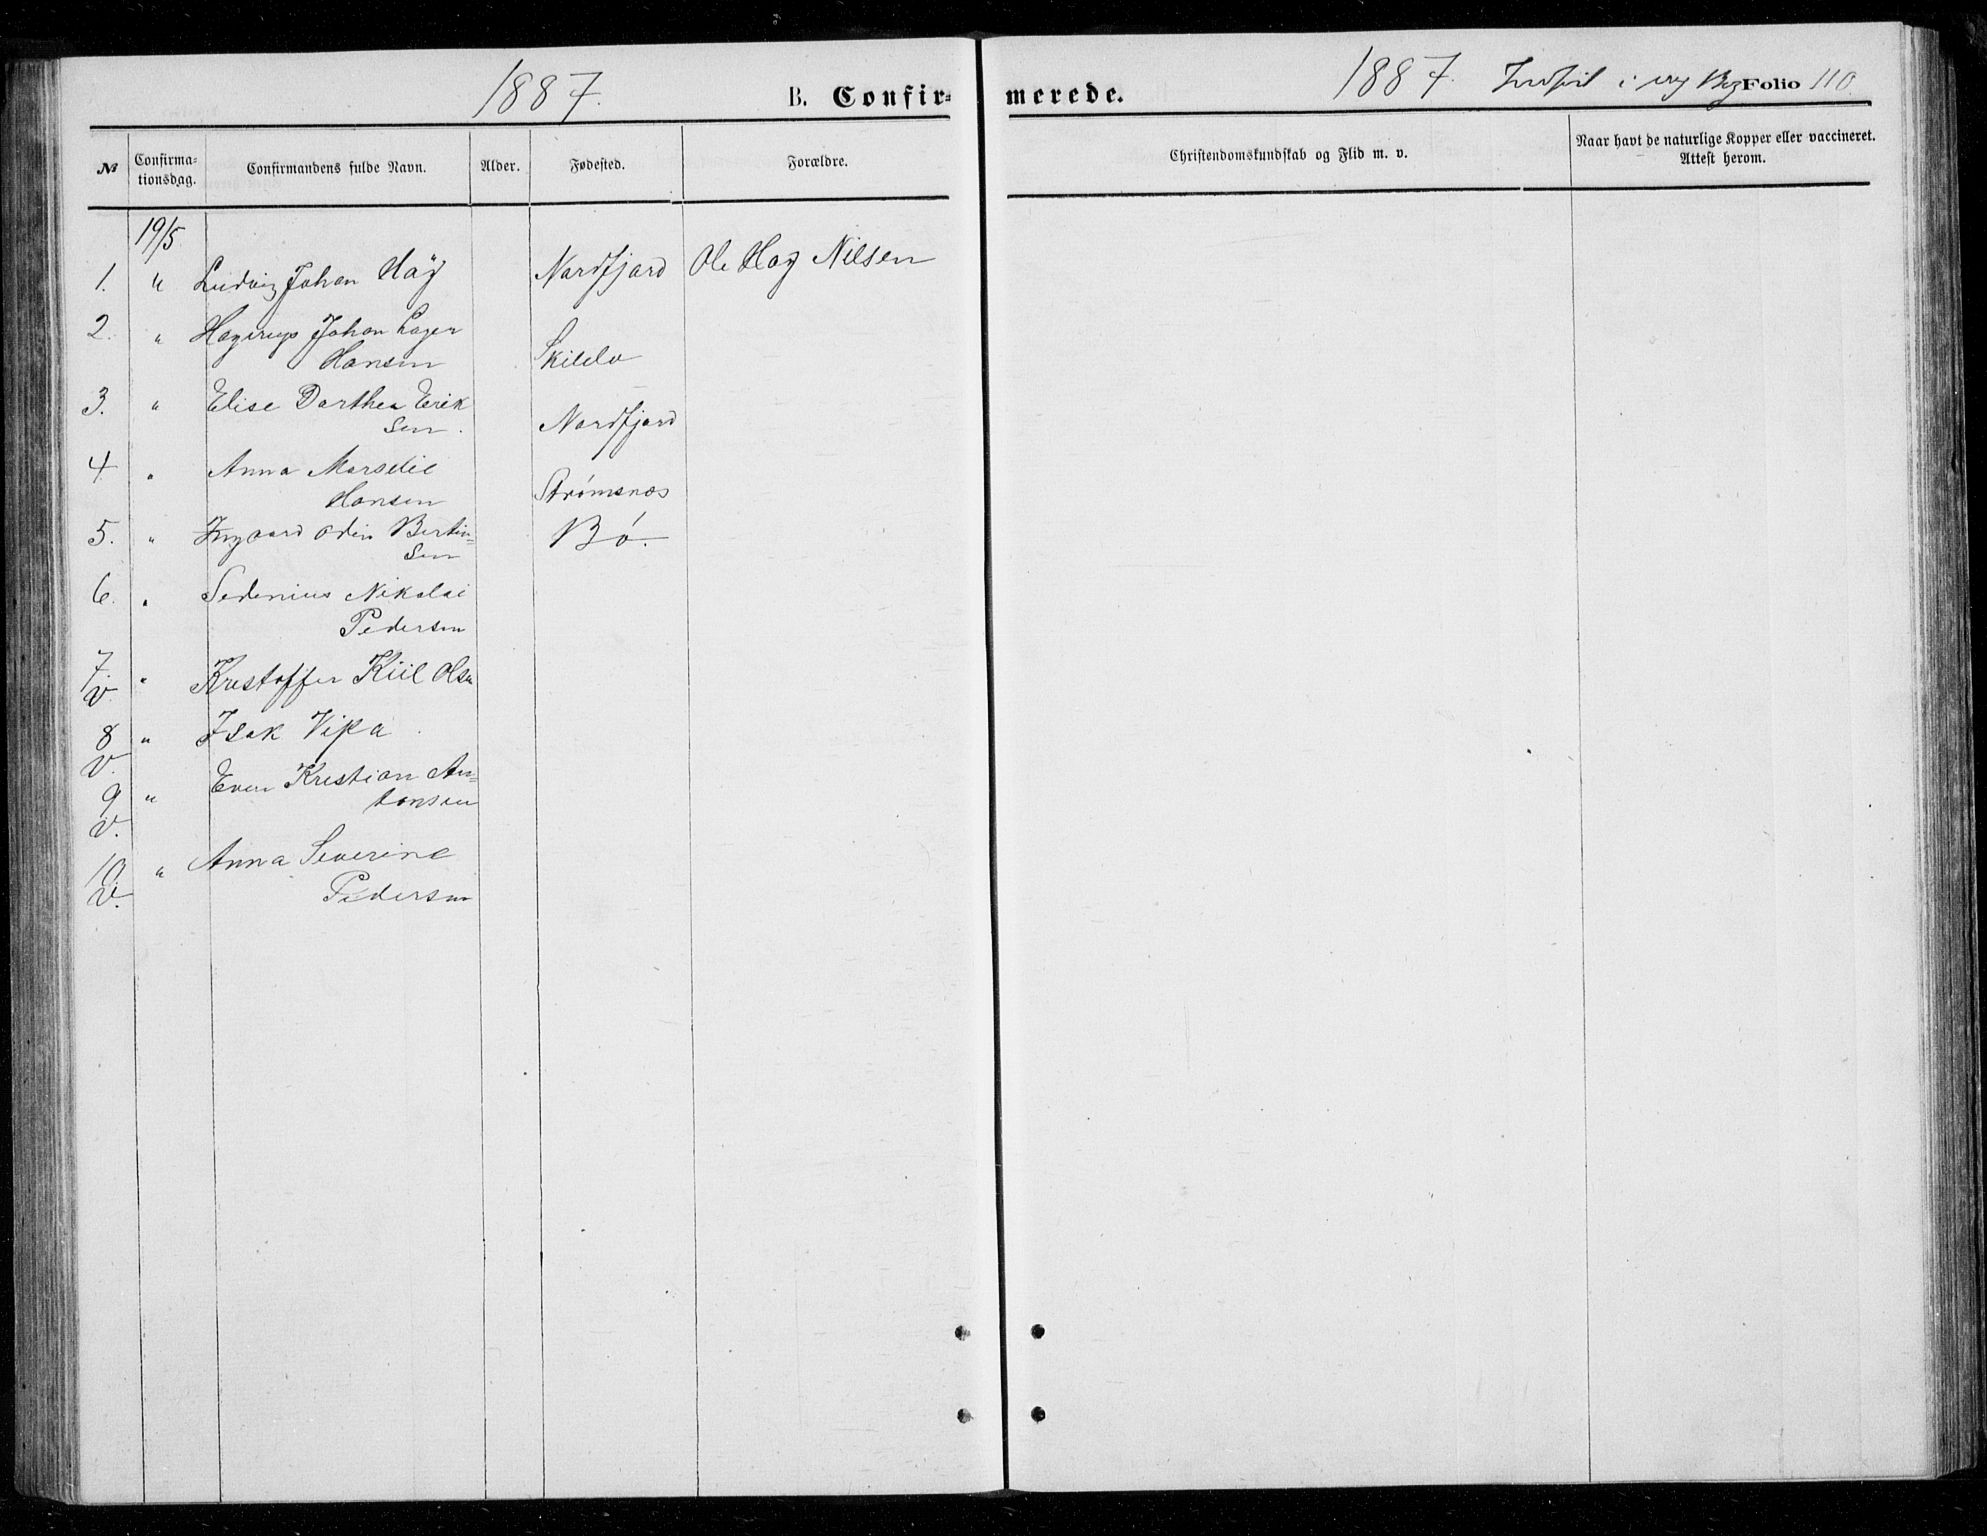 1887. B. Confir- merede. 1887. Indført i ny Bog Folio 110.
№ Confirma-tionsdag. Confirmandens fulde Navn. Alder. Fødested. Forældre. Christendomskundskab og Flid m. v. Naar havt de naturlige Kopper eller vaccineret. Attest herom.
19/5
1. " Ludvig Johan Høy Nordfjord Ole Hog Nilsen
2. " Hagerup Johan Lager
Hansen Skildo
3. " Elise Dorthea Erik
sen. Nordfjord
4. " Anna Marselie
Hansen Strømsnes
5. " Ingvard Odin Bertin=
sen Bø.
6. " Sedenius Nikolai
Pedersen
7. " Kristoffer Kiil Olsn
v.
8 " Isak Vipa
v.
9 " Even Kristian An=
tonsen
v.
10. " Anna Severine
v. Pedersen